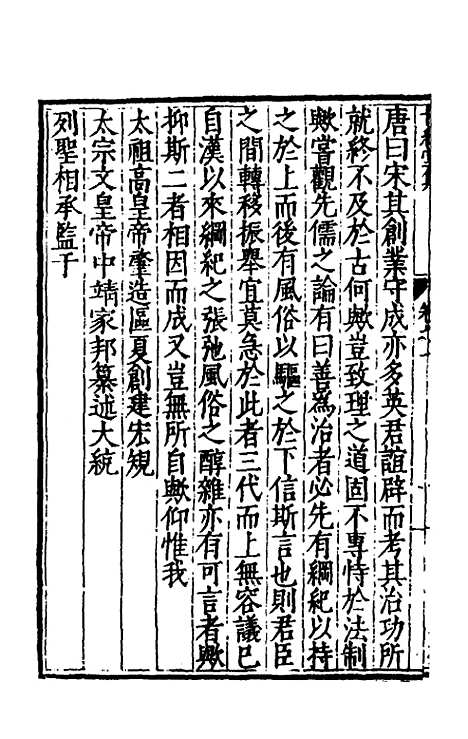 唐曰宋其創業守成亦多英君誼辟而考其治功所
就終不及於古何歟豈致理之道固不專恃於法制
歟嘗觀先儒之論有曰善爲治者必先有綱紀以持
之於上而後有風俗以驅之於下信斯言也則君臣
之間轉移振舉宜莫急於此者三代而上無容議已
自漢以來綱紀之張弛風俗之醇雜亦有可言者歟
抑斯二者相因而成又豈無所自歟仰惟我
太祖高皇帝肇造區夏創建宏規
太宗文皇帝中靖家邦纂述大統
列聖相承監于